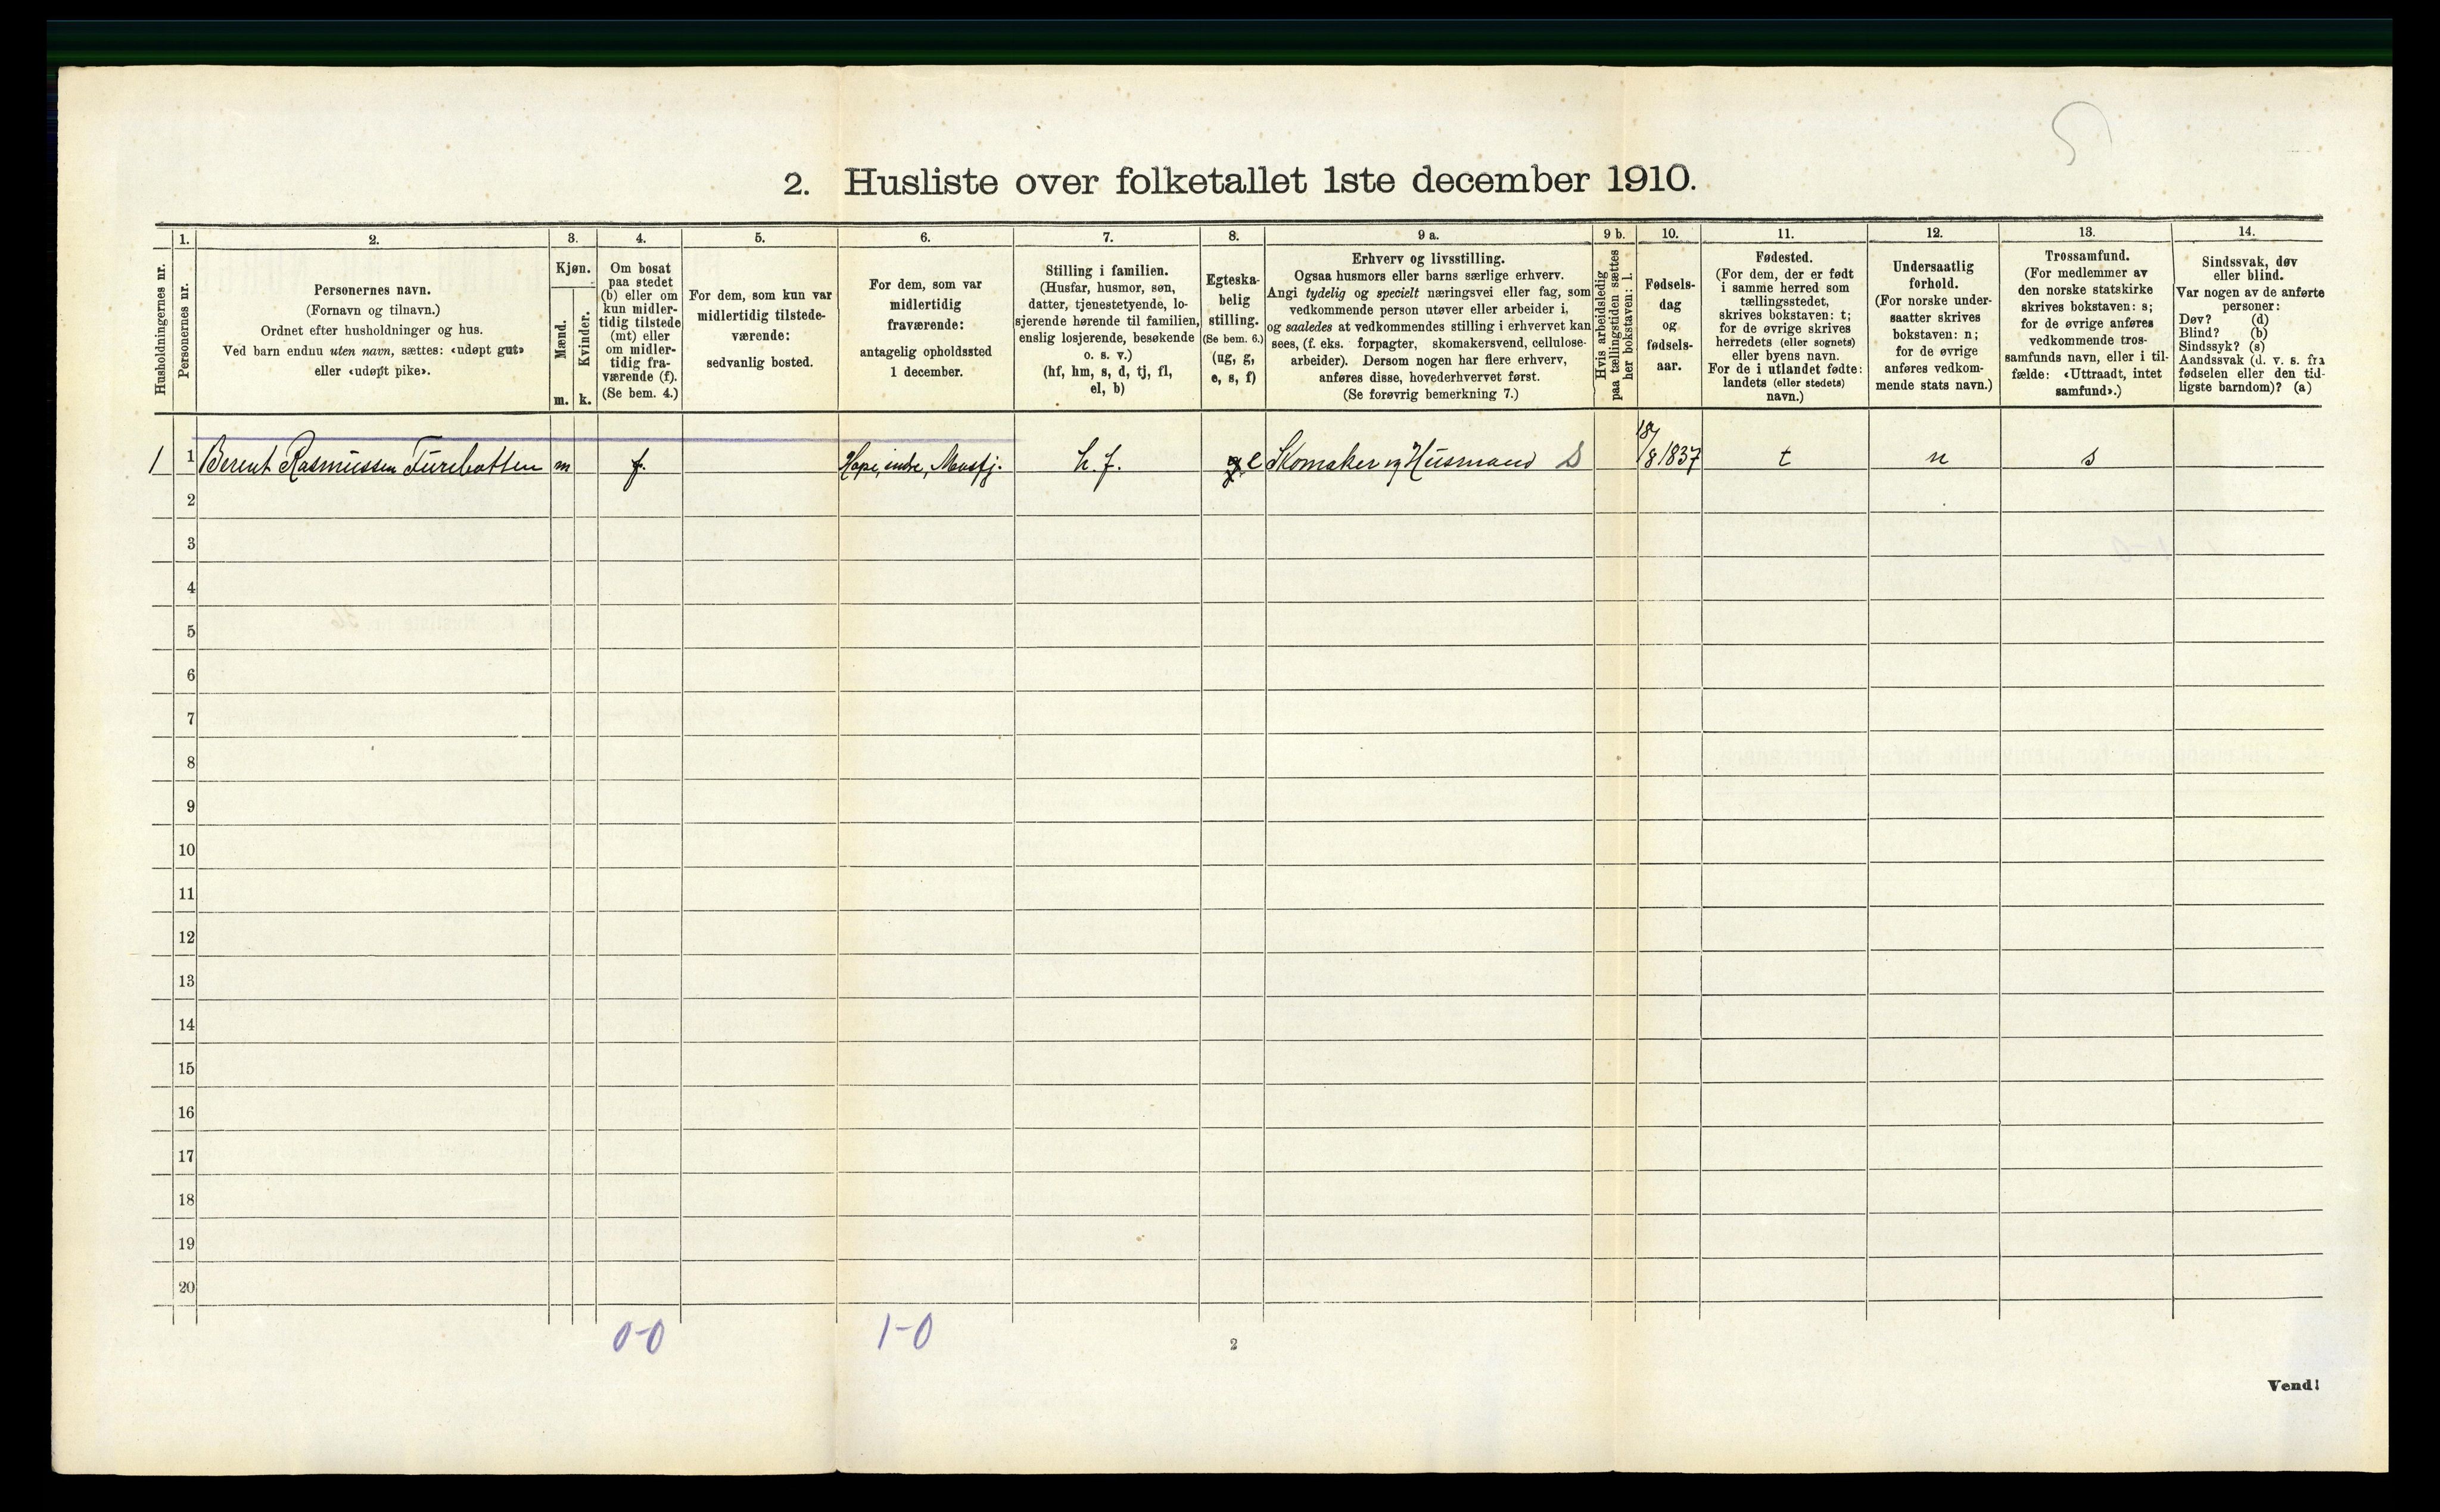 2. Husliste over folketallet 1ste december 1910.
Husholdningernes nr.
1.
Personernes nr.
2.
Personernes navn.
(Fornavn og tilnavn.)
Ordnet efter husholdninger og hus.
Ved barn endnu uten navn, sættes: «udøpt gut»
eller «udøpt pike».
3.
Kjøn.
Mænd.
m.
Kvinder.
k.
4.
Om bosat
paa stedet
(b) eller om
kun midler-
tidig tilstede
(mt) eller
om midler-
tidig fra-
værende (f).
(Se bem. 4.)
5.
For dem, som kun var
midlertidig tilstede-
værende:
sedvanlig bosted.
6.
For dem, som var
midlertidig
fraværende:
antagelig opholdssted
1 december.
7.
Stilling i familien.
(Husfar, husmor, søn,
datter, tjenestetyende, lo-
sjerende hørende til familien,
enslig losjerende, besøkende
o. s. v.)
(hf, hm, s, d, tj, fl,
el, b)
8.
Egteska-
belig
stilling.
(Se bem. 6.)
(ug, g,
e, s, f)
9 a.
Erhverv og livsstilling.
Ogsaa husmors eller barns særlige erhverv.
Angi tydelig og specielt næringsvei eller fag, som
vedkommende person utøver eller arbeider i,
og saaledes at vedkommendes stilling i erhvervet kan
sees, (f. eks. forpagter, skomakersvend, cellulose-
arbeider). Dersom nogen har flere erhverv,
anføres disse, hovederhvervet først.
(Se forøvrig bemerkning 7.)
9 b.
Hvis arbeidsledig
paa tællingstiden sættes
her bokstaven: l.
10.
Fødsels-
dag
og
fødsels-
aar.
11.
Fødested.
(For dem, der er født
i samme herred som
tællingsstedet,
skrives bokstaven: t;
for de øvrige skrives
herredets (eller sognets)
eller byens navn.
For de i utlandet fødte:
landets (eller stedets)
navn.)
12.
Undersaatlig
forhold.
(For norske under-
saatter skrives
bokstaven: n;
for de øvrige
anføres vedkom-
mende stats navn.)
13.
Trossamfund.
(For medlemmer av
den norske statskirke
skrives bokstaven: s;
for de øvrige anføres
vedkommende tros-
samfunds navn, eller i til-
fælde: «Uttraadt, intet
samfund».)
14.
Sindssvak, døv
eller blind.
Var nogen av de anførte
personer:
Døv? (d)
Blind? (b)
Sindssyk? (s)
Aandssvak (d. v. s. fra
fødselen eller den tid-
ligste barndom)? (a)
1 1 Berent Rasmussen Furebotten m f. Hope, indre, Masfj. h.f. g e Skomaker og Husmand S 18/8 1837 t n s
2
3
4
5
6
7
8
9
10
11
12
13
14
15
16
17
18
19
20
0-0 1-0
2
Vend!